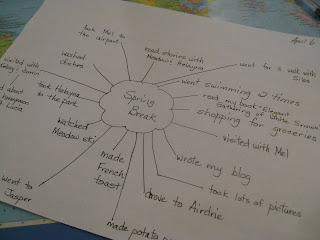 April 6
Spring
Break
took Mel to
the airport
read stories with
Meadow &
went for a walk with
Silas
went swimming 2 times
read my book "Elegant
Gathering of White Snows"
shopping for groceries
visited with Mel
wrote my blog
took lots of pictures
drove to Airdrie
made potato
made
French
toast
watched
Meadow ski
went to
Jasper
took
to the park
washed
clothes
visited with